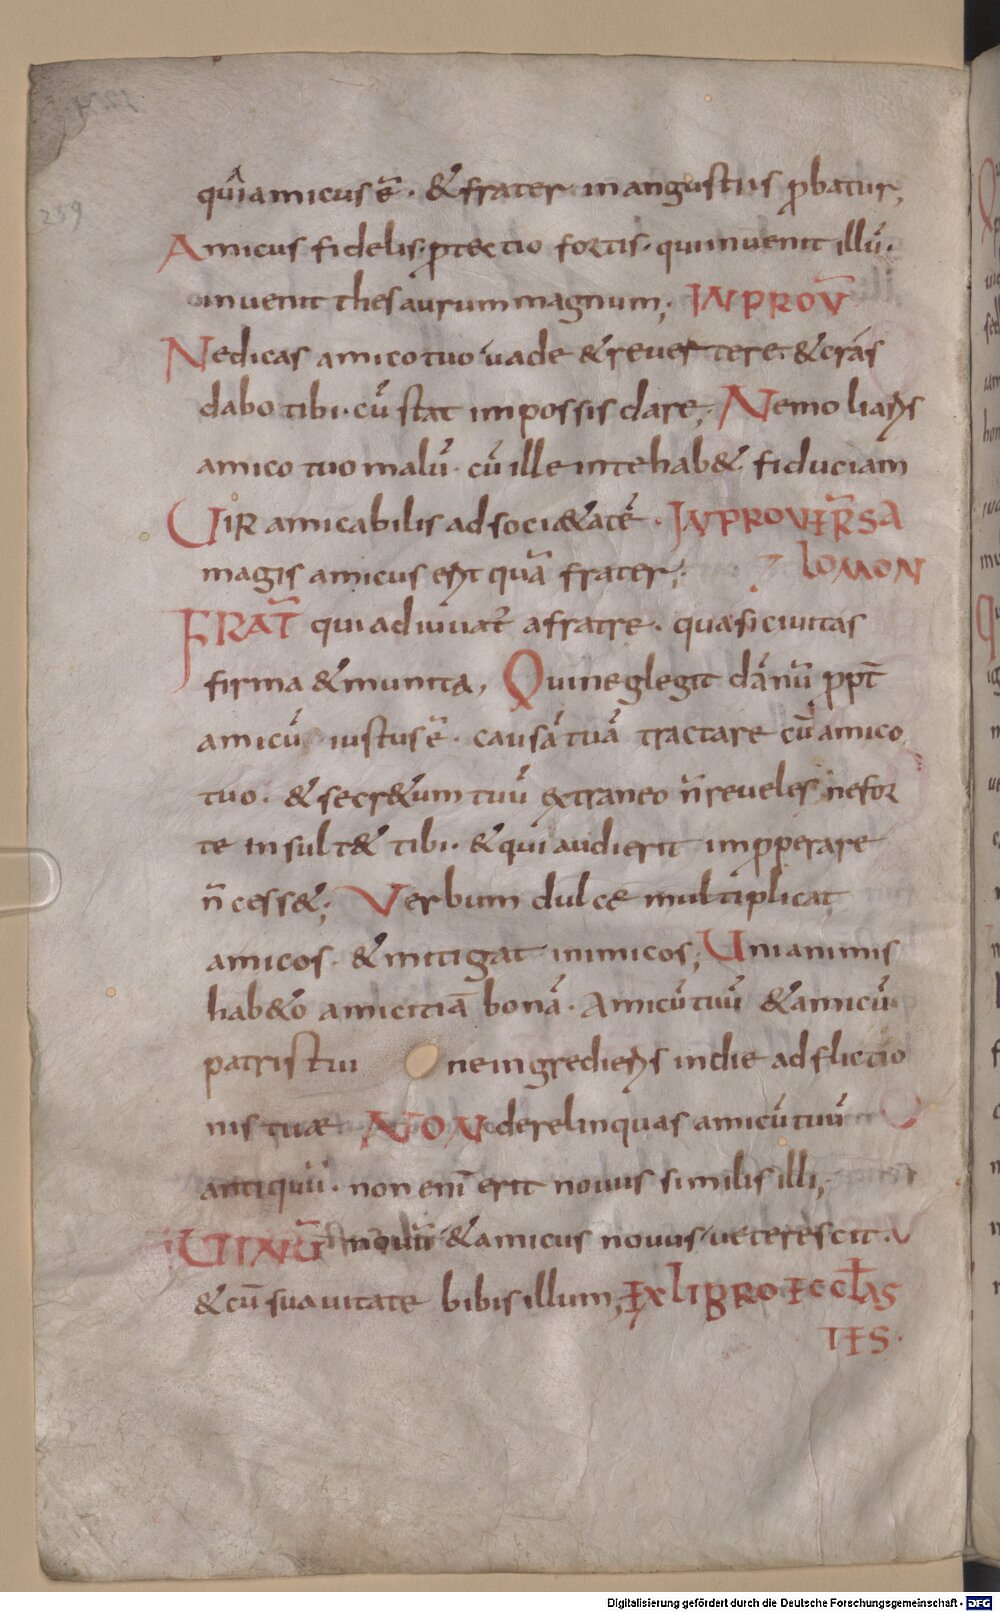 quia amicus ē · & frater in angustiis p̄batur,
Amicus fidelis p̄tectio fortis · qui inuenit illū ·
inuenit thesaurum magnum; IN PROV̄
Ne dicas amico tuo uade & reuertere · & cras
dabo tibi · cū stat̄ impossis dare; Nemo liaris
amico tuo malū · cū ille in te hab& fiduciam
UIR amicabilis ad soci&atē · IN PROVERSA
magis amicus erit quā frater; LOMON
FRAT̄ qui adiuuat̄ a fratre · quasi ciuitas
firma & munita, Qui neglegit dānū ppt̄
amicū iustus ē · causā tuā tractare cū amico
tuo · & secr&um tuū extraneo n̄ reueles ne for
te insult& tibi · & qui audierit improperare
n̄ cess&; Verbum dulce multiplicat
amicos · & mitigat inimicos; Unianimis
hab&o amicitiā bonā · Amicū tuū & amicū
patris tui ne ingredieris in die adflictio
nis tuae NON derelinquas amicū tuū
antiquū · non enī erit nouus similis illi;
UINŪ nouū & amicus nouus ueterescit · V
& cū suauitate bibis illum; EX LIBRO ECCLAS
TES ·
259
Digitalisierung gefördert durch die Deutsche Forschungsgemeinschaft - DFG